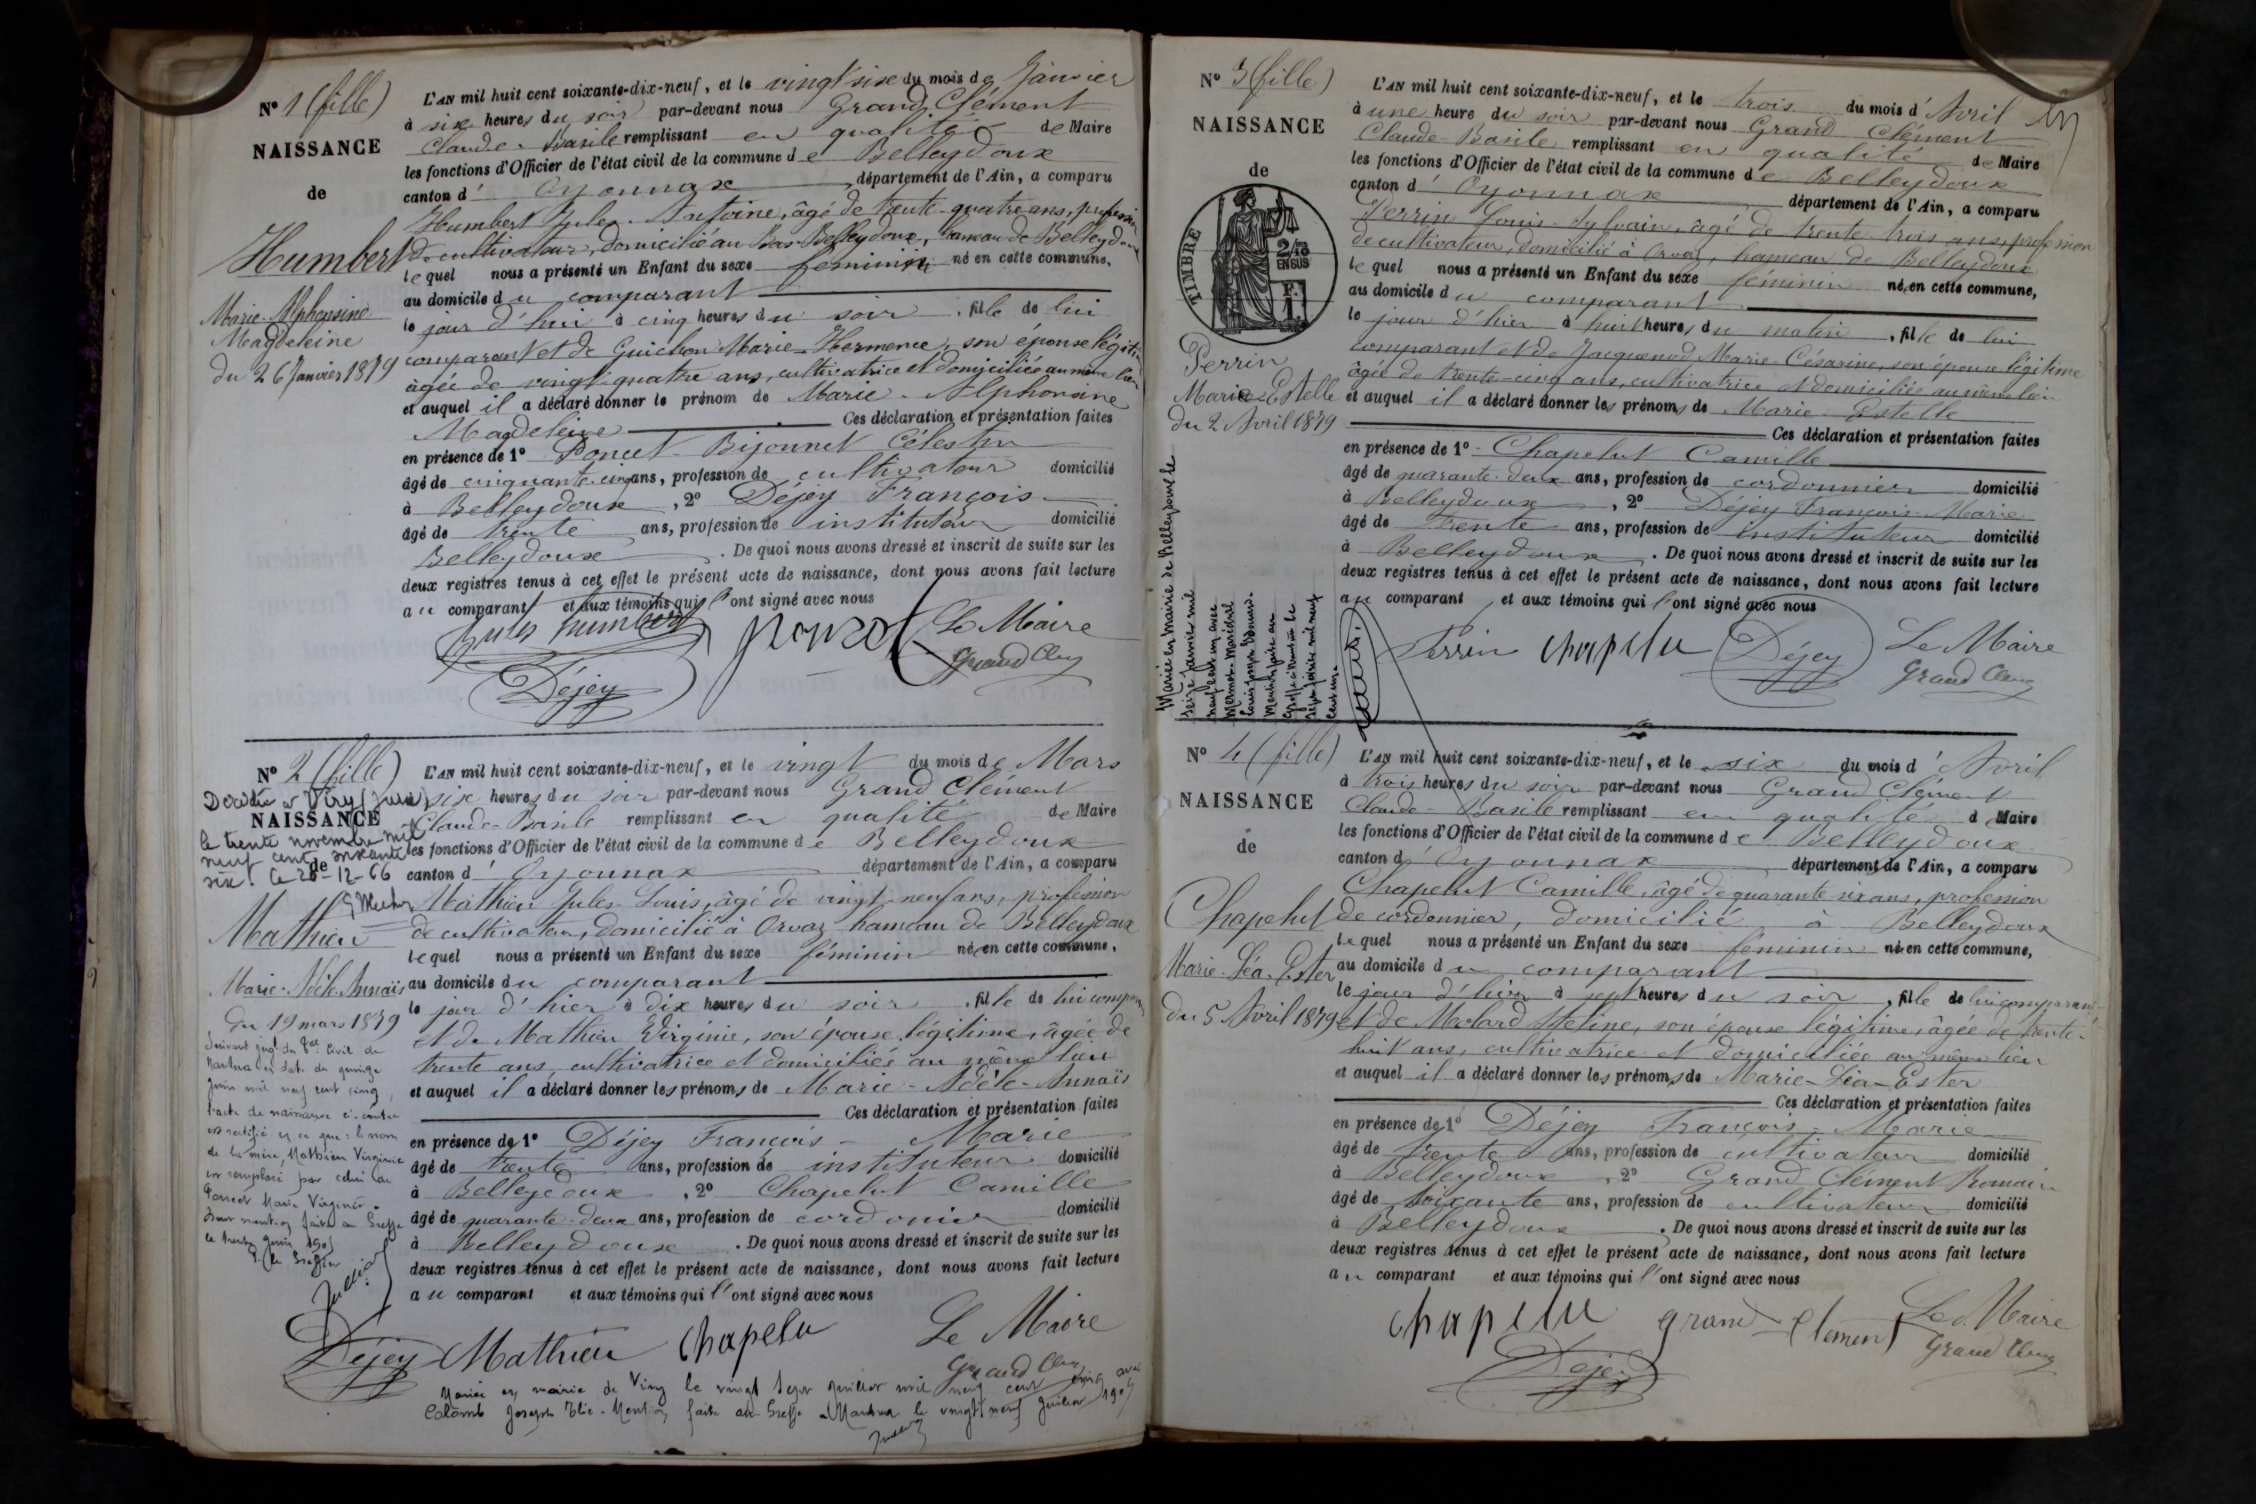 N° 1 (fille)
NAISSANCE
de
Humbert
Marie-Alphonsine
Magdeleine
du 26 Janvier 1879
L'AN mil huit cent soixante-dix-neuf, et le vingt six du mois de Janvier
à six heures du soir par-devant nous Grand Clément
Claude-Basile remplissant en qualité de Maire
les fonctions d'Officier de l'état civil de la commune de Belleydoux
canton d'Oyonnax département de l'Ain, a comparu
Humbert Jules-Antoine, âgé de trente-quatre ans, profession
de cultivateur, domicilié au Bas-Belleydoux, hameau de Belleydoux
lequel nous a présenté un Enfant du sexe féminin né en cette commune,
au domicile du comparant
le jour d'hui à cinq heures du soir, fille de lui
comparant et de Guichon Marie-Hermence, son épouse légitime
âgée de vingt-quatre ans, cultivatrice et domiciliée au même lieu
et auquel il a déclaré donner le prénom de Marie-Alphonsine
Magdeleine Ces déclaration et présentation faites
en présence de 1° Poncet-Bijonnet Célestin
âgé de cinquante-cinq ans, profession de cultivateur domicilié
à Belleydoux, 2° Déjey François
âgé de trente ans, profession de instituteur domicilié
Belleydoux. De quoi nous avons dressé et inscrit de suite sur les
deux registres tenus à cet effet le présent acte de naissance, dont nous avons fait lecture
au comparant et aux témoins qui l'ont signé avec nous
Jules humbert Le Maire
Déjey Grand Clem
N° 2 (fille)
Décédée à Viry (Jura)
NAISSANCE
le trente novembre mil
neuf cent soixante
six. Le 20-12-66
de
Mathieu
Marie-Adèle-Annaïs
du 19 mars 1879
Suivant jugt du Tal civil de
Nantua en date du quinze
juin mil neuf cent cinq,
l'acte de naissance ci-contre
est rectifié en ce que: le nom
de la mère, Mathieu Virginie
est remplacé par celui de
Poncet Marie Virginie.
Dont mention faite au Greffe
le trente Juin 1905
Le Greffier
L'AN mil huit cent soixante-dix-neuf, et le vingt du mois de Mars
six heures du soir par-devant nous Grand Clément
Claude-Basile remplissant en qualité de Maire
les fonctions d'Officier de l'état civil de la commune de Belleydoux
canton d'Oyonnax département de l'Ain, a comparu
Mathieu Jules-Louis, âgé de vingt-neuf ans, profession
de cultivateur, domicilié à Orvaz hameau de Belleydoux
lequel nous a présenté un Enfant du sexe féminin né en cette commune,
au domicile du comparant
le jour d'hier à dix heures du soir, fille de lui comparant
et de Mathieu Virginie, son épouse légitime, âgée de
trente ans, cultivatrice et domiciliée au même lieu
et auquel il a déclaré donner les prénoms de Marie-Adèle-Annaïs
Ces déclaration et présentation faites
en présence de 1° Déjey François-Marie
âgé de trente ans, profession de instituteur domicilié
à Belleydoux, 2° Chapelut Camille
âgé de quarante-deux ans, profession de cordonier domicilié
à Belleydoux. De quoi nous avons dressé et inscrit de suite sur les
deux registres tenus à cet effet le présent acte de naissance, dont nous avons fait lecture
au comparant et aux témoins qui l'ont signé avec nous
Déjey Mathieu Chapelu Le Maire
Grand Clem
Mariée en mairie de Viry le vingt sept Juillet mil neuf cent cinq avec
Colomb Joseph Elie. Mention faite au Greffe Nantua le vingt neuf Juillet 1905
N° 3 (fille)
NAISSANCE
de
TIMBRE
2/10
EN SUS
F.
1
Perrin
Marie-Estelle
du 2 Avril 1879
Mariée en mairie de Belleydoux le
seize janvier mil
neuf cent un avec
L'AN mil huit cent soixante-dix-neuf, et le trois du mois d'Avril
à une heure du soir par-devant nous Grand Clément
Claude-Basile remplissant en qualité de Maire
les fonctions d'Officier de l'état civil de la commune de Belleydoux
canton d'Oyonnax département de l'Ain, a comparu
Perrin Louis-Sylvain, âgé de trente-trois ans, profession
de cultivateur, domicilié à Orvaz, hameau de Belleydoux
lequel nous a présenté un Enfant du sexe féminin né en cette commune,
au domicile du comparant
le jour d'hier à huit heures du matin, fille de lui
comparant et de Jacquenod Marie-Césarine, son épouse légitime
âgée de trente-cinq ans, cultivatrice et domiciliée au même lieu
et auquel il a déclaré donner les prénoms de Marie-Estelle
Ces déclaration et présentation faites
en présence de 1° Chapelut Camille
âgé de quarante-deux ans, profession de cordonnier domicilié
à Belleydoux, 2° Déjey François-Marie
âgé de trente ans, profession de instituteur domicilié
à Belleydoux. De quoi nous avons dressé et inscrit de suite sur les
deux registres tenus à cet effet le présent acte de naissance, dont nous avons fait lecture
au comparant, et aux témoins qui l'ont signé avec nous
Perrin Chapelu Déjey Le Maire
Grand Clem
N° 4 (fille)
NAISSANCE
de
Chapelut
Marie-Léa-Ester
du 5 Avril 1879
L'AN mil huit cent soixante-dix-neuf, et le six du mois d'Avril
à trois heures du soir par-devant nous Grand Clément
Claude-Basile remplissant en qualité d Maire
les fonctions d'Officier de l'état civil de la commune de Belleydoux
canton d'Oyonnax département de l'Ain, a comparu
Chapelut Camille, âgé de quarante six ans, profession
de cordonnier, domicilié à Belleydoux
lequel nous a présenté un Enfant du sexe féminin né en cette commune,
au domicile du comparant
le jour d'hier à sept heures du soir, fille de lui comparant
et de Molard Steline, son épouse légitime, âgée de trente-
huit ans, cultivatrice et domiciliée au même lieu
et auquel il a déclaré donner les prénoms de Marie-Léa-Ester
Ces déclaration et présentation faites
en présence de 1° Déjey François-Marie
âgé de trente ans, profession de cultivateur domicilié
à Belleydoux, 2° Grand Clément Romain
âgé de soixante ans, profession de cultivateur domicilié
à Belleydoux. De quoi nous avons dressé et inscrit de suite sur les
deux registres tenus à cet effet le présent acte de naissance, dont nous avons fait lecture
au comparant et aux témoins qui l'ont signé avec nous
Chapelu grand-Clement Le Maire
Dejey Grand Clem